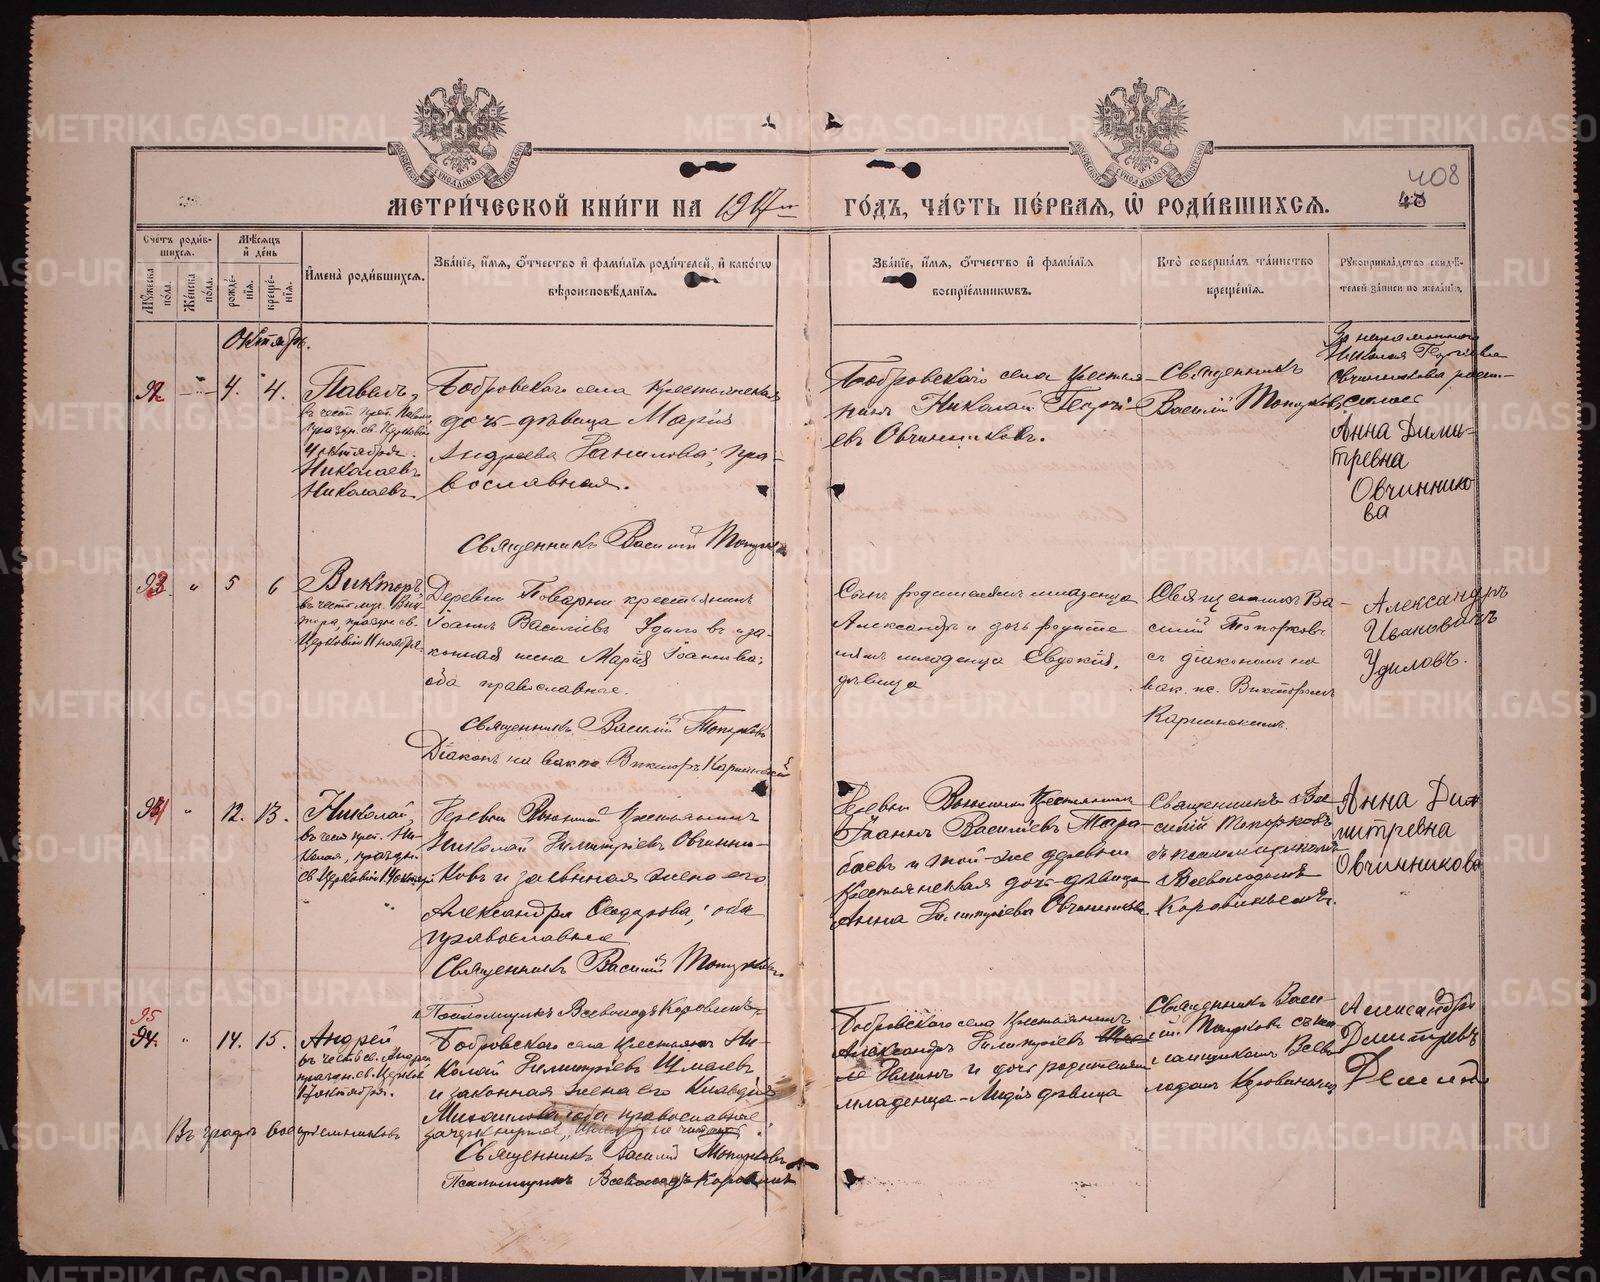 408
43
МЕТРИ́ЧЕСКОЙ КНИ́ГИ НА 1917 ГО́ДЪ, ЧА́СТЬ ПЕ́РВАЯ, Ѡ҆ РОДИ́ВШИХСЯ.
Сче́тъ роди́в-
шихся.
Мꙋжеска по́ла.
Же́нска по́ла.
Мѣ́сяцъ
и҆ де́нь
рожде-
нїѧ.
креще-
нїѧ.
И҆мена̀ роди́вшихся.
Зва́нїе, и҆́мѧ, ѻ҆́тчество и҆ фами́лїѧ роди́телей, и҆ како́гѡ
вѣроисповѣ́данїѧ.
Зва́нїе, и҆́мѧ, ѻ҆́тчество и҆ фами́лїѧ
воспрїе́мникѡвъ.
Кто̀ соверша́лъ та́инство
креще́нїѧ.
Рꙋкоприкла́дство свидѣ́-
телей за́писи по жела́нїю.
Октябрь.
92 " 4. 4.
Павелъ,
Николаевъ
Николаевъ
Бобровскаго села крестьянская
дочь-дѣвица Марія
Андреева Данилова, пра-
вославная.
Священникъ Василій Топорковъ
Бобровскаго села крестья-
нинъ Николай Георгі-
евъ Овчинниковъ.
Священникъ
Василій Топорковъ
За неграмотнаго
Николая Георгіева
Овчинникова
Анна Дими-
тревна
Овчиннико
ва
93. " 5 6
Викторъ
въ честь муч. Вик-
тора, праздн. св.
Церковію 11 ноября.
Деревни Поварни крестьянинъ
Іоаннъ Василіевъ Удиловъ и за-
конная жена Марія Іоаннова;
оба православные.
Священникъ Василій Топорковъ
Діаконъ на вак. пс. Викторъ Карпинскій
Сынъ родителей младенца
Александръ и дочь родите
лей младенца Евдокія,
дѣвица
Священникъ Ва-
силій Топорковъ
съ діакономъ на
вак. пс. Викторомъ
Карпинскимъ.
Александръ
Ивановичъ
Удиловъ.
94 " 12. 13.
Николай,
въ честь преп. Ни-
колая, праздн.
св. Церковію
Деревни крестьянинъ
Николай Димитріевъ Овчинни-
ковъ и законная жена его
Александра Ѳеодорова; оба
православные
Священникъ Василій Топорковъ
Псаломщикъ Всеволодъ Коровинъ
Деревни крестьянинъ
Іоаннъ Василіевъ Тара-
баевъ и той-же деревни
крестьянская дочь-дѣвица
Анна Димитріева Овчинникова
Священникъ Ва-
силій Топорковъ
съ псаломщикомъ
Всеволодомъ
Коровинымъ.
Анна Дим
митревна
Овчинникова
95
94. " 14. 15.
Андрей
въ честь св. Андрея
праздн. св. Церковію
17 октября.
Бобровскаго села крестьянинъ Ни-
колай Димитріевъ
и законная жена его Клавдія
Михаилова, оба православные
Въ графѣ воспріемниковъ
зачеркнутое не читать.
Священникъ Василій Топорковъ
Псаломщикъ Всеволодъ Коровинъ
Бобровскаго села крестьянинъ
Александръ Димитріевъ
и дочь родителей
младенца - Лидія дѣвица
Священникъ Васи-
лій Топорковъ съ пса
ломщикомъ Всево
лодомъ Коровинымъ
Александръ
Дмитревъ
METRIKI.GASO-URAL.RU